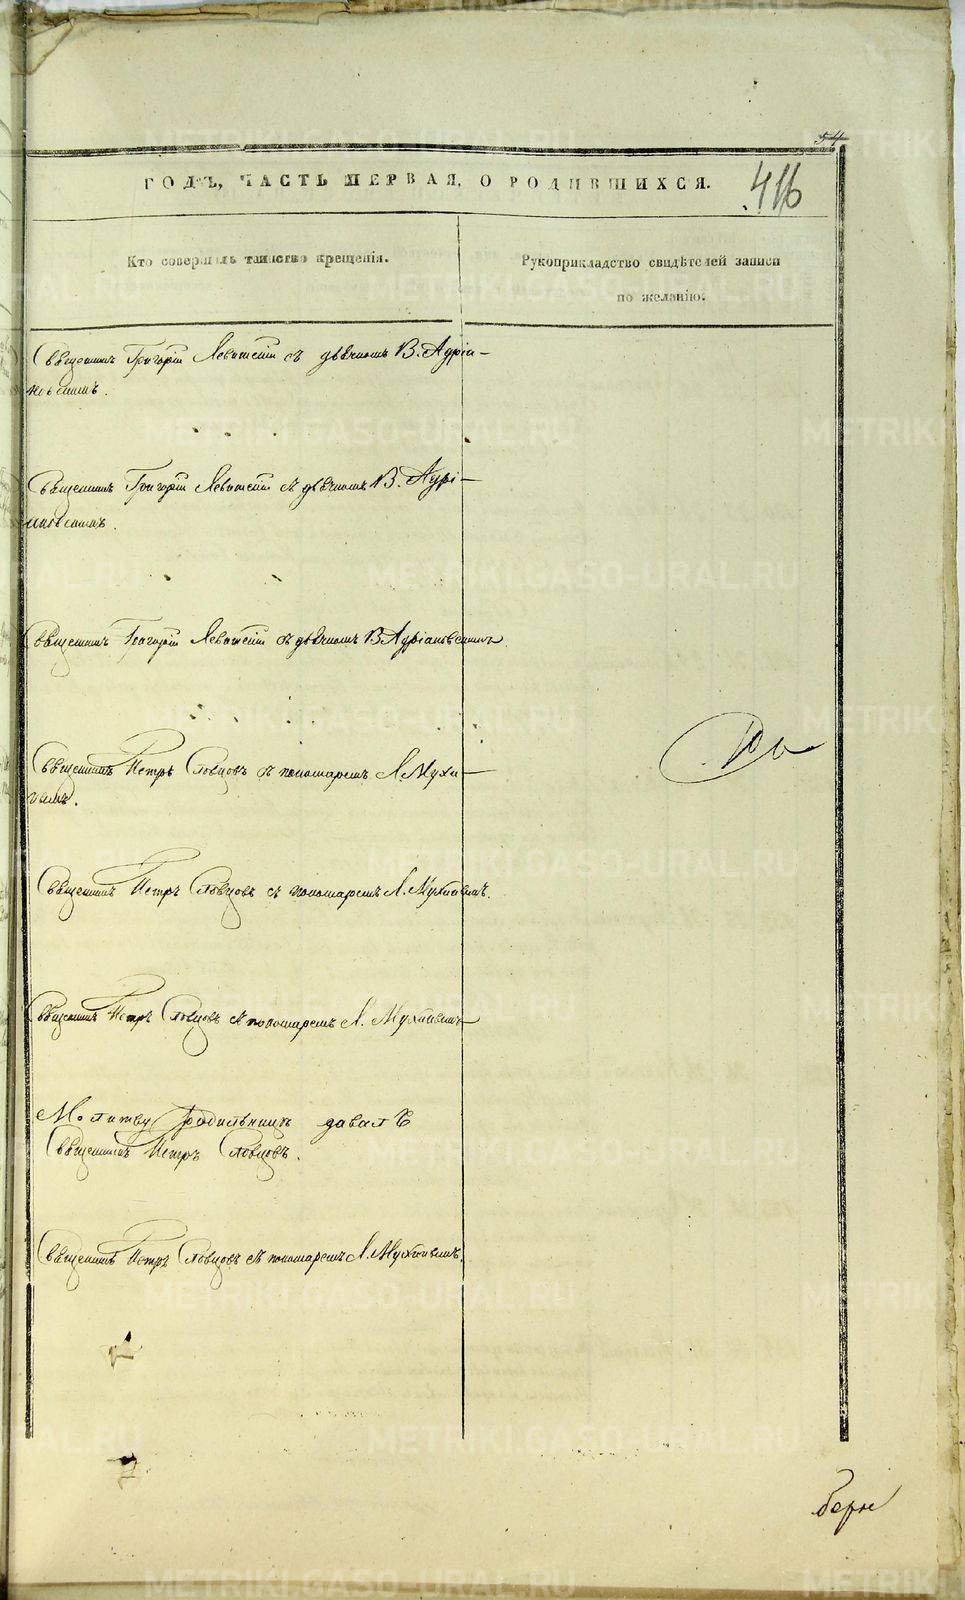 54
ГОДЪ, ЧАСТЬ ПЕРВАЯ, О РОДИВШИХСЯ.
416
Кто совершалъ таинство крещенія.
Рукоприкладство свидѣтелей записи
по желанію.
Священникъ Григорій Левитскій съ дьячкомъ В. Адріа-
новскимъ.
Священникъ Григорій Левитскій съ дьячкомъ В. Адрі-
ановскимъ.
Священникъ Григорій Левитскій съ дьячкомъ В. Адріановскимъ
Священникъ Петръ Словцовъ съ пономаремъ Л.
Священникъ Петръ Словцовъ съ пономаремъ Л.
Священникъ Петръ Словцовъ съ пономаремъ Л.
Молитву родильницѣ давалъ
Священникъ Петръ Словцовъ.
Священникъ Петръ Словцовъ съ пономаремъ Л.
METRIKI.GASO-URAL.RU